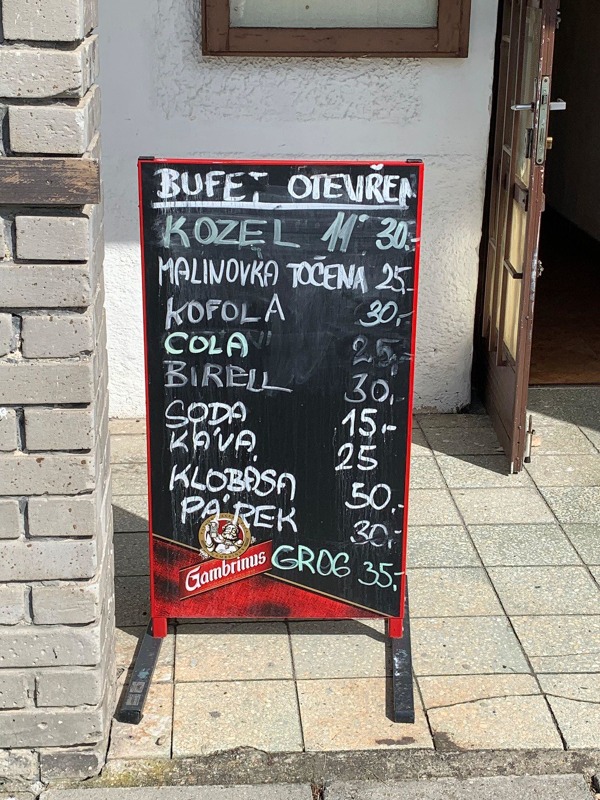 BUFET OTEVŘEN
KOZEL 11° 30,-
MALINOVKA TOČENA 25,-
KOFOLA 30,-
COLA 25,-
BIRELL 30,-
SODA 15,-
KÁVA 25
KLOBÁSA 50,-
PÁREK 30,-
Gambrinus
GROG 35,-